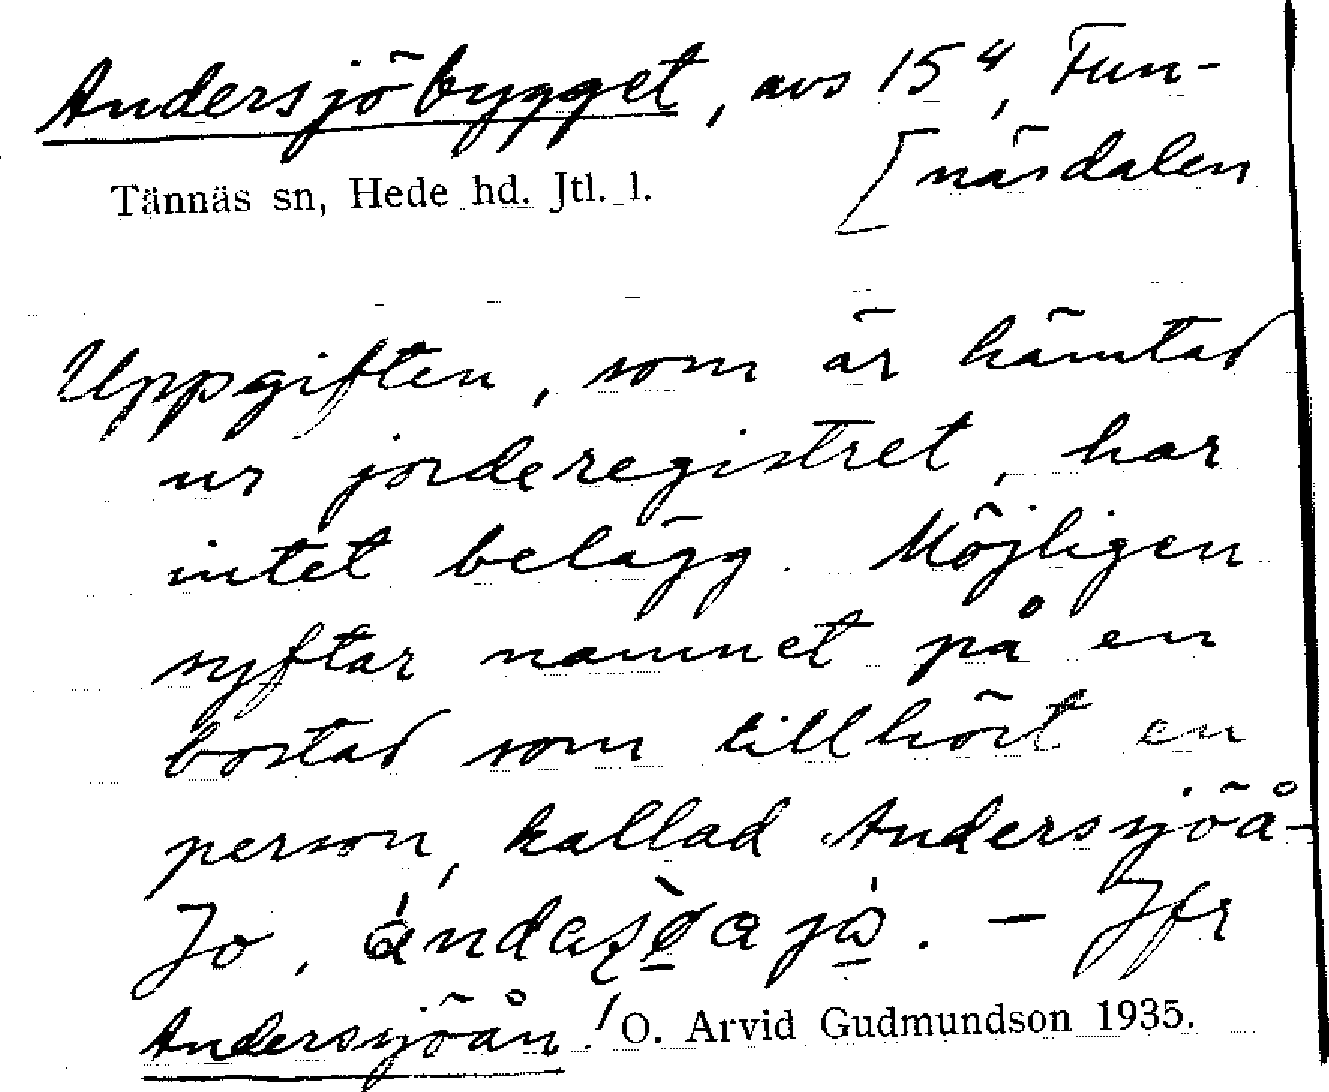 Andersjöbygget, avs 15⁴, Fun-
[näsdalen
Tännäs sn, Hede hd. Jtl. l.
Uppgiften, som är hämtad
ur jorderegistret, har
intet belägg. Möjligen
syftar namnet på en
bostad som tillhört en
person, kallad Andersjöå-
Jo, . – Jfr
Andersjöån!
O. Arvid Gudmundson 1935.